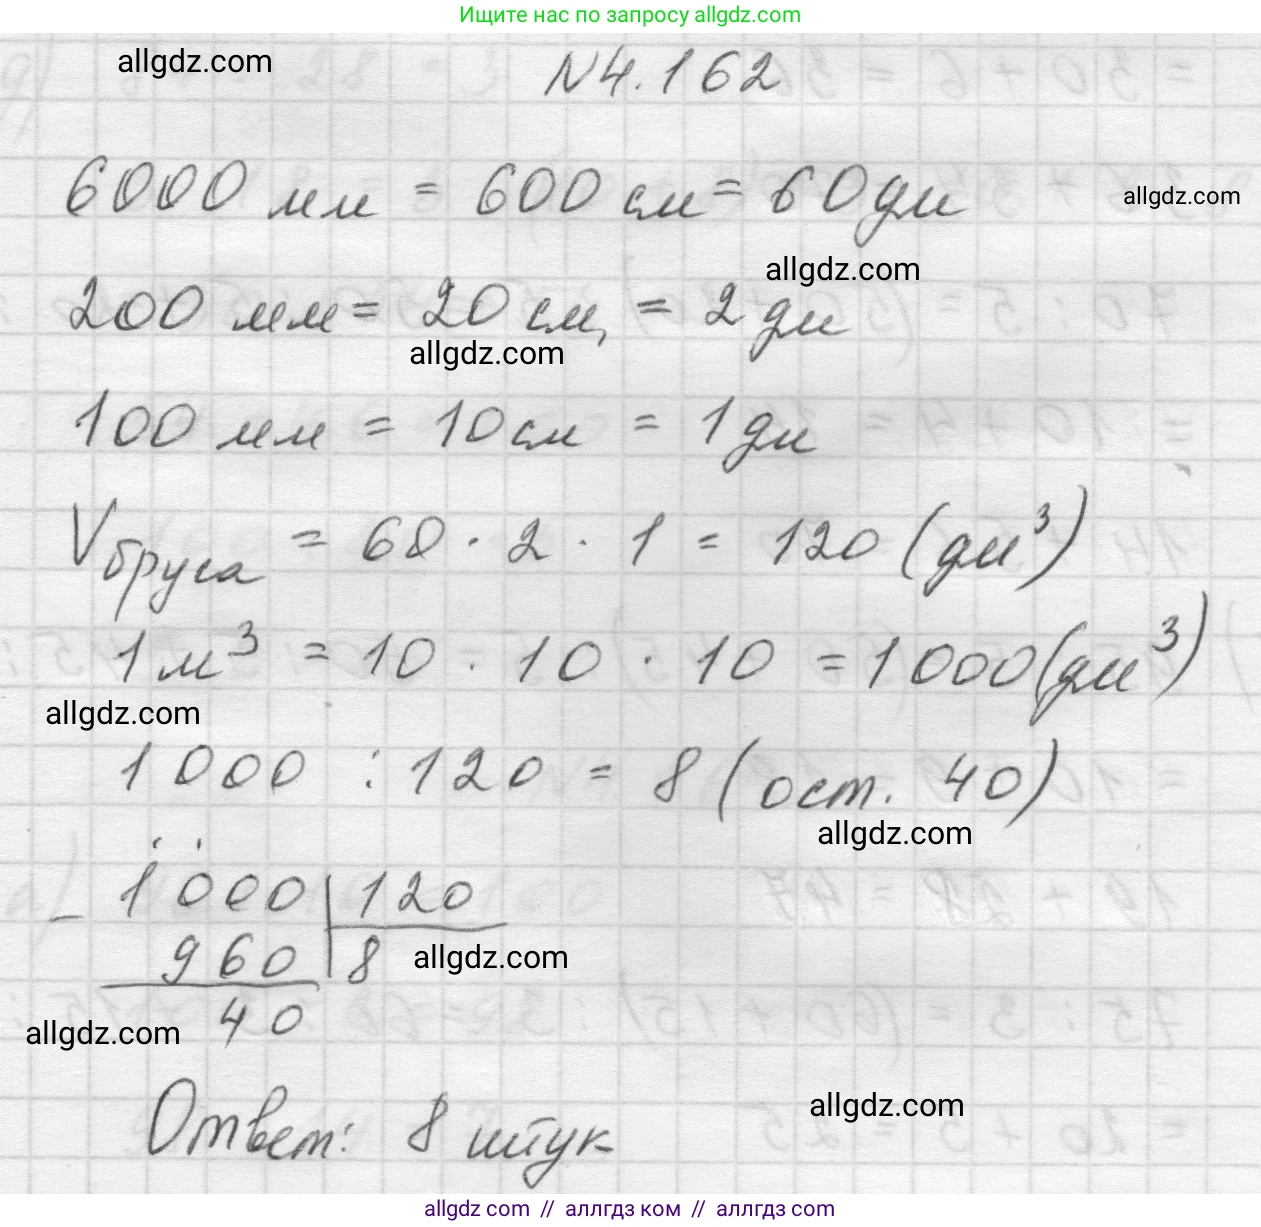 Ищите нас по запросу allgdz.com
allgdz.com
N4.162
6000 мм = 600 см = 60 дм
allgdz.com
allgdz.com
200 мм = 20 см, = 2 дм
allgdz.com
100 мм = 10 см = 1 дм
Vбруса = 60 · 2 · 1 = 120 (дм³)
1 м³ = 10 · 10 · 10 = 1000 (дм³)
allgdz.com
1000 : 120 = 8 (ост. 40)
allgdz.com
1000 120
– 960 8
allgdz.com
40
allgdz.com
Ответ: 8 штук
allgdz.com
allgdz.com // аллгдз ком // аллгдз.com